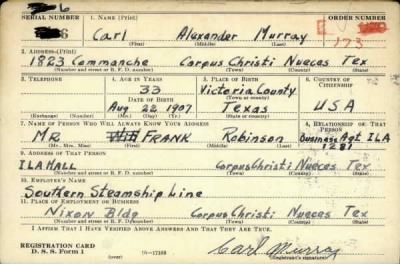 SERIAL NUMBER 1. NAME (Print) ORDER NUMBER
6 Carl Alexander Murray 173
(First) (Middle) (Last)
2. ADDRESS (Print)
1823 Commanche Corpus Christi Nueces Tex
(Number and street or R. F. D. number) (Town) (County) (State)
3. TELEPHONE 4. AGE IN YEARS 5. PLACE OF BIRTH 6. COUNTRY OF CITIZENSHIP
33 Victoria County
DATE OF BIRTH (Town or county)
Aug 22 1907 Texas USA
(Exchange) (No.) (Mo.) (Day) (Yr.) (State or country)
7. NAME OF PERSON WHO WILL ALWAYS KNOW YOUR ADDRESS 8. RELATIONSHIP OF THAT PERSON
Mr. FRANK Robinson Business Agt ILA 1281
(Mr., Mrs., Miss) (First) (Middle) (Last)
9. ADDRESS OF THAT PERSON
ILA HALL Corpus Christi Nueces Tex
(Number and street or R. F. D. number) (Town) (County) (State)
10. EMPLOYER'S NAME
Southern Steamship Line
11. PLACE OF EMPLOYMENT OR BUSINESS
Nixon Bldg Corpus Christi Nueces Tex
(Number and street or R. F. D. number) (Town) (County) (State)
I AFFIRM THAT I HAVE VERIFIED ABOVE ANSWERS AND THAT THEY ARE TRUE.
REGISTRATION CARD
D. S. S. Form 1 16—17105 Carl Murray
(Registrant's signature)